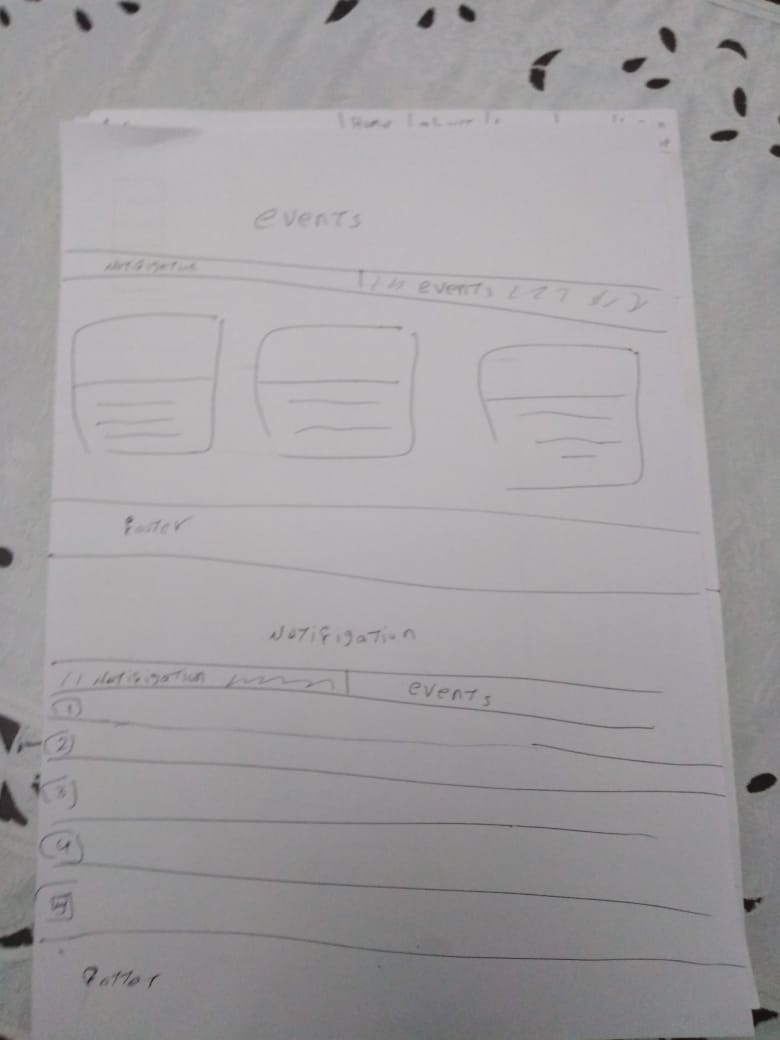 Home
events
Notifigation
events
Footer
Notifigation
Notifigation
events
1
2
3
4
Footter